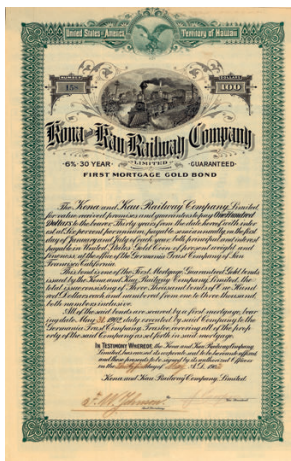 United States of America Territory of Hawaii
NUMBER DOLLARS
158 100
Kona and Kau Railway Company
LIMITED
6% 30 YEAR GUARANTEED
FIRST MORTGAGE GOLD BOND
The Kona and Kau Railway Company, Limited
for value received promises and guarantees to pay One Hundred
Dollars to the bearer Thirty years from the date hereof with inter-
est at Six per cent per annum, payable semi-annually on the first
day of January and July of each year, both principal and interest
payable in United States Gold Coin of present weight and
fineness, at the office of the Germania Trust Company of San
Francisco California.
This bond is one of the First Mortgage Guaranteed Gold bonds
issued by the Kona and Kau Railway Company, Limited, the
total issue consisting of Three thousand bonds of One Hund-
red Dollars each and numbered from one to three thousand
both numbers inclusive.
All of the said bonds are secured by a first mortgage, bear-
ing date May 1902, duly executed by said Company to the
Germania Trust Company, Trustee, covering all of the prop-
erty of the said Company as set forth in said mortgage.
IN TESTIMONY WHEREOF, the Kona and Kau Railway Company,
Limited, has caused its corporate seal to be hereunto affixed
and these presents to be signed by its President and Officers
on the day of May A.D. 1902
Kona and Kau Railway Company, Limited
Johnson